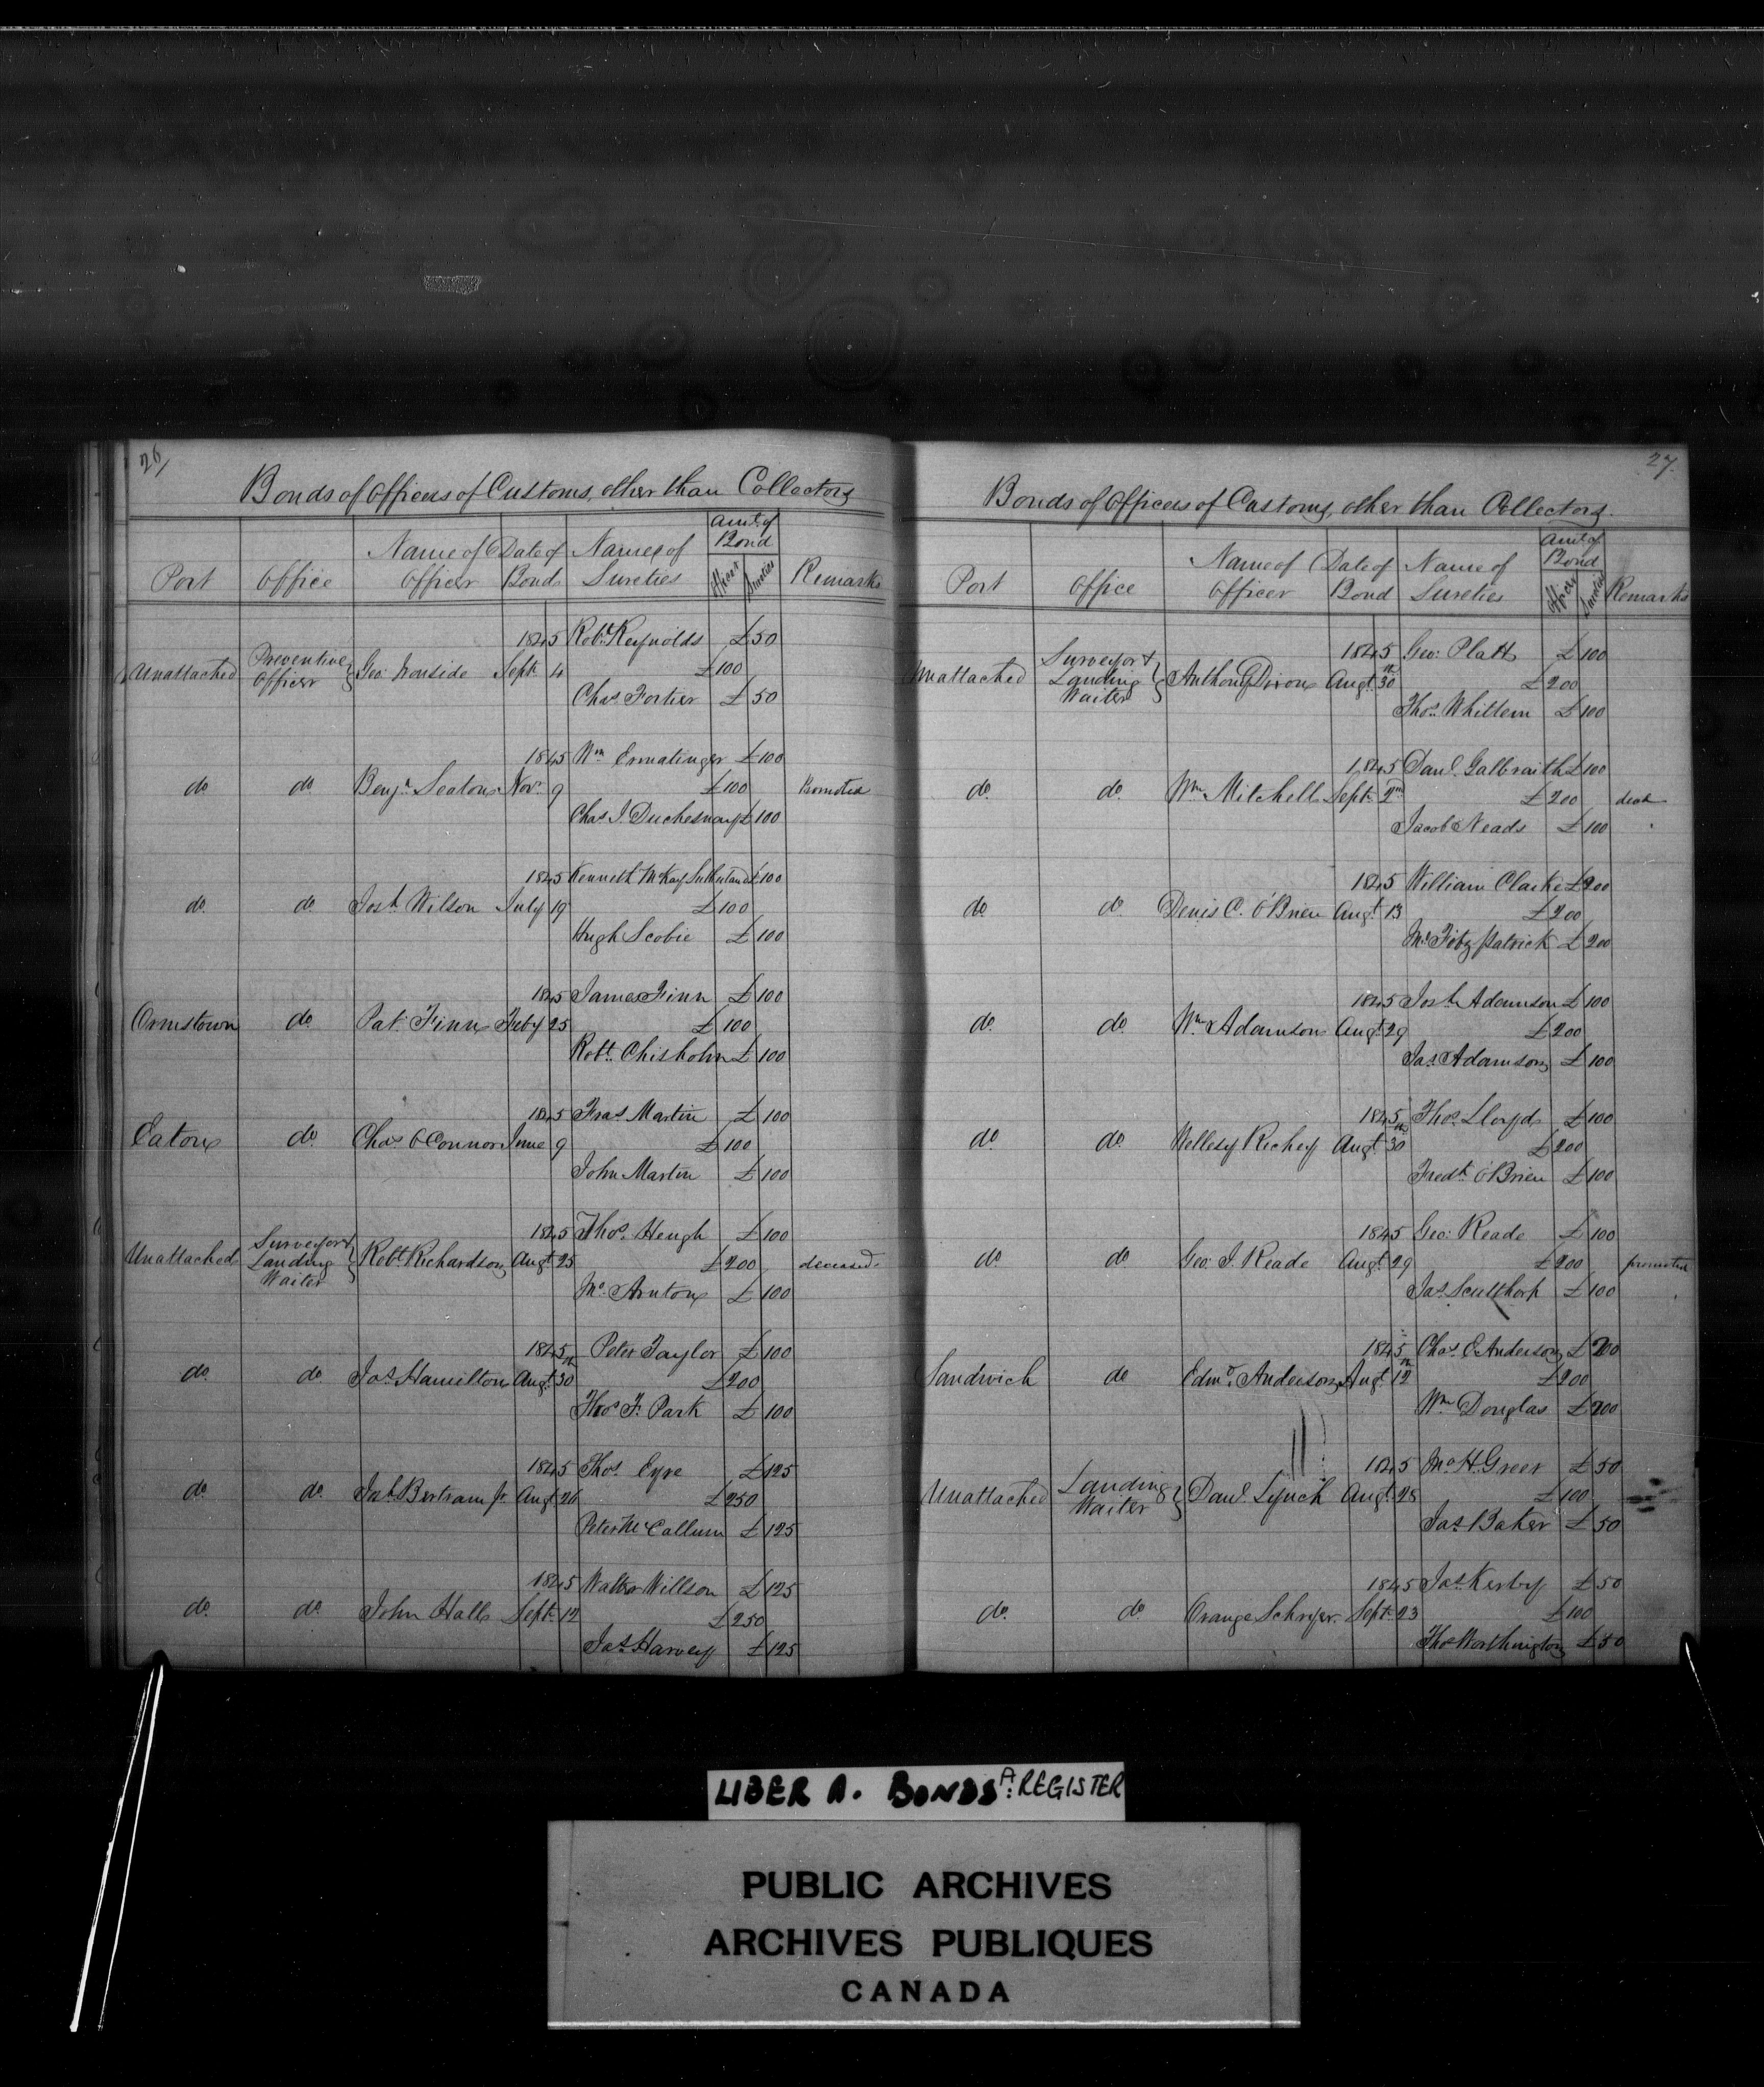 26
Bonds of Officers of Customs, other than Collectors
Port Office Name of Officer Date of Bond Names of Sureties Amt. of Bond Officer Sureties Remarks
1845 Robt. Reynolds £50
Unattached Preventive Officer } Geo. Ironside Sept. 4 £100
Chas. Fortier £50
1845 Wm. Ermatinger £100
do. do. Benjn. Seaton Novr. 9 £100 Promoted
Chas. J. Duchesnay £100
1845 Kenneth McKay Sutherland £100
do. do. Josh. Wilson July 19 £100
Hugh Scobie £100
1845 James Finn £100
Ormstown do. Pat. Finn Feby 25 £100
Robt. Chisholm £100
1845 Fras. Martin £100
Eaton do. Chas. O'Connor June 9 £100
John Martin £100
1845 Thos. Heugh £100
Unattached Surveyor & Landing Waiter } Robt. Richardson Augt. 25 £200 deceased.
Jno. Arnton £100
1845 Peter Taylor £100
do. do. Jas. Hamilton Augt. 30 £200
Thos. F. Park £100
1845 Thos. Eyre £125
do. do. Bertram Jr. Augt. 26 £250
Peter McCallum £125
1845 Walter Willson £125
do. do. John Hall Sept. 12 £250
Jas. Harvey £125
27.
Bonds of Officers of Customs, other than Collectors.
Port Office Name of Officer Date of Bond Name of Sureties Amt. of Bond Officer Sureties Remarks
1845 Geo: Platt £100
Unattached Surveyor & Landing Waiter } Anthony Dixon Augt. 30 £200
Thos. Whittem £100
1845 Danl. Galbraith £100
do. do. Wm. Mitchell Sept. 2 £200 dead
Jacob Neads £100
1845 William Clarke £200
do. do. Denis C. O'Brien Augt. 13 £200
Jno. Fitzpatrick £200
1845 Josh. Adamson £100
do. do. Wm. Adamson Augt. 29 £200
Jas. Adamson £100
1845 Thos. Lloyd £100
do. do. Wellesy Richey Augt. 30 £200
Fredk. O'Brien £100
1845 Geo: Reade £100
do. do. Geo: J. Reade Augt. 29 £200 promoted
Jas. Scutthorp £100
1845 Chas. E. Anderson £200
Sandwich do. Edmd. Anderson Augt. 12 £200
Wm. Douglas £200
1845 Jno. H. Greer £50
Unattached Landing Waiter } Danl. Lynch Augt. 28 £100
Jas. Baker £50
1845 Jas. Kerby £50
do. do. Orange Schryer Sept. 23 £100
Thos. Worthington £50
LIBER A. BONDS A: REGISTER
PUBLIC ARCHIVES
ARCHIVES PUBLIQUES
CANADA